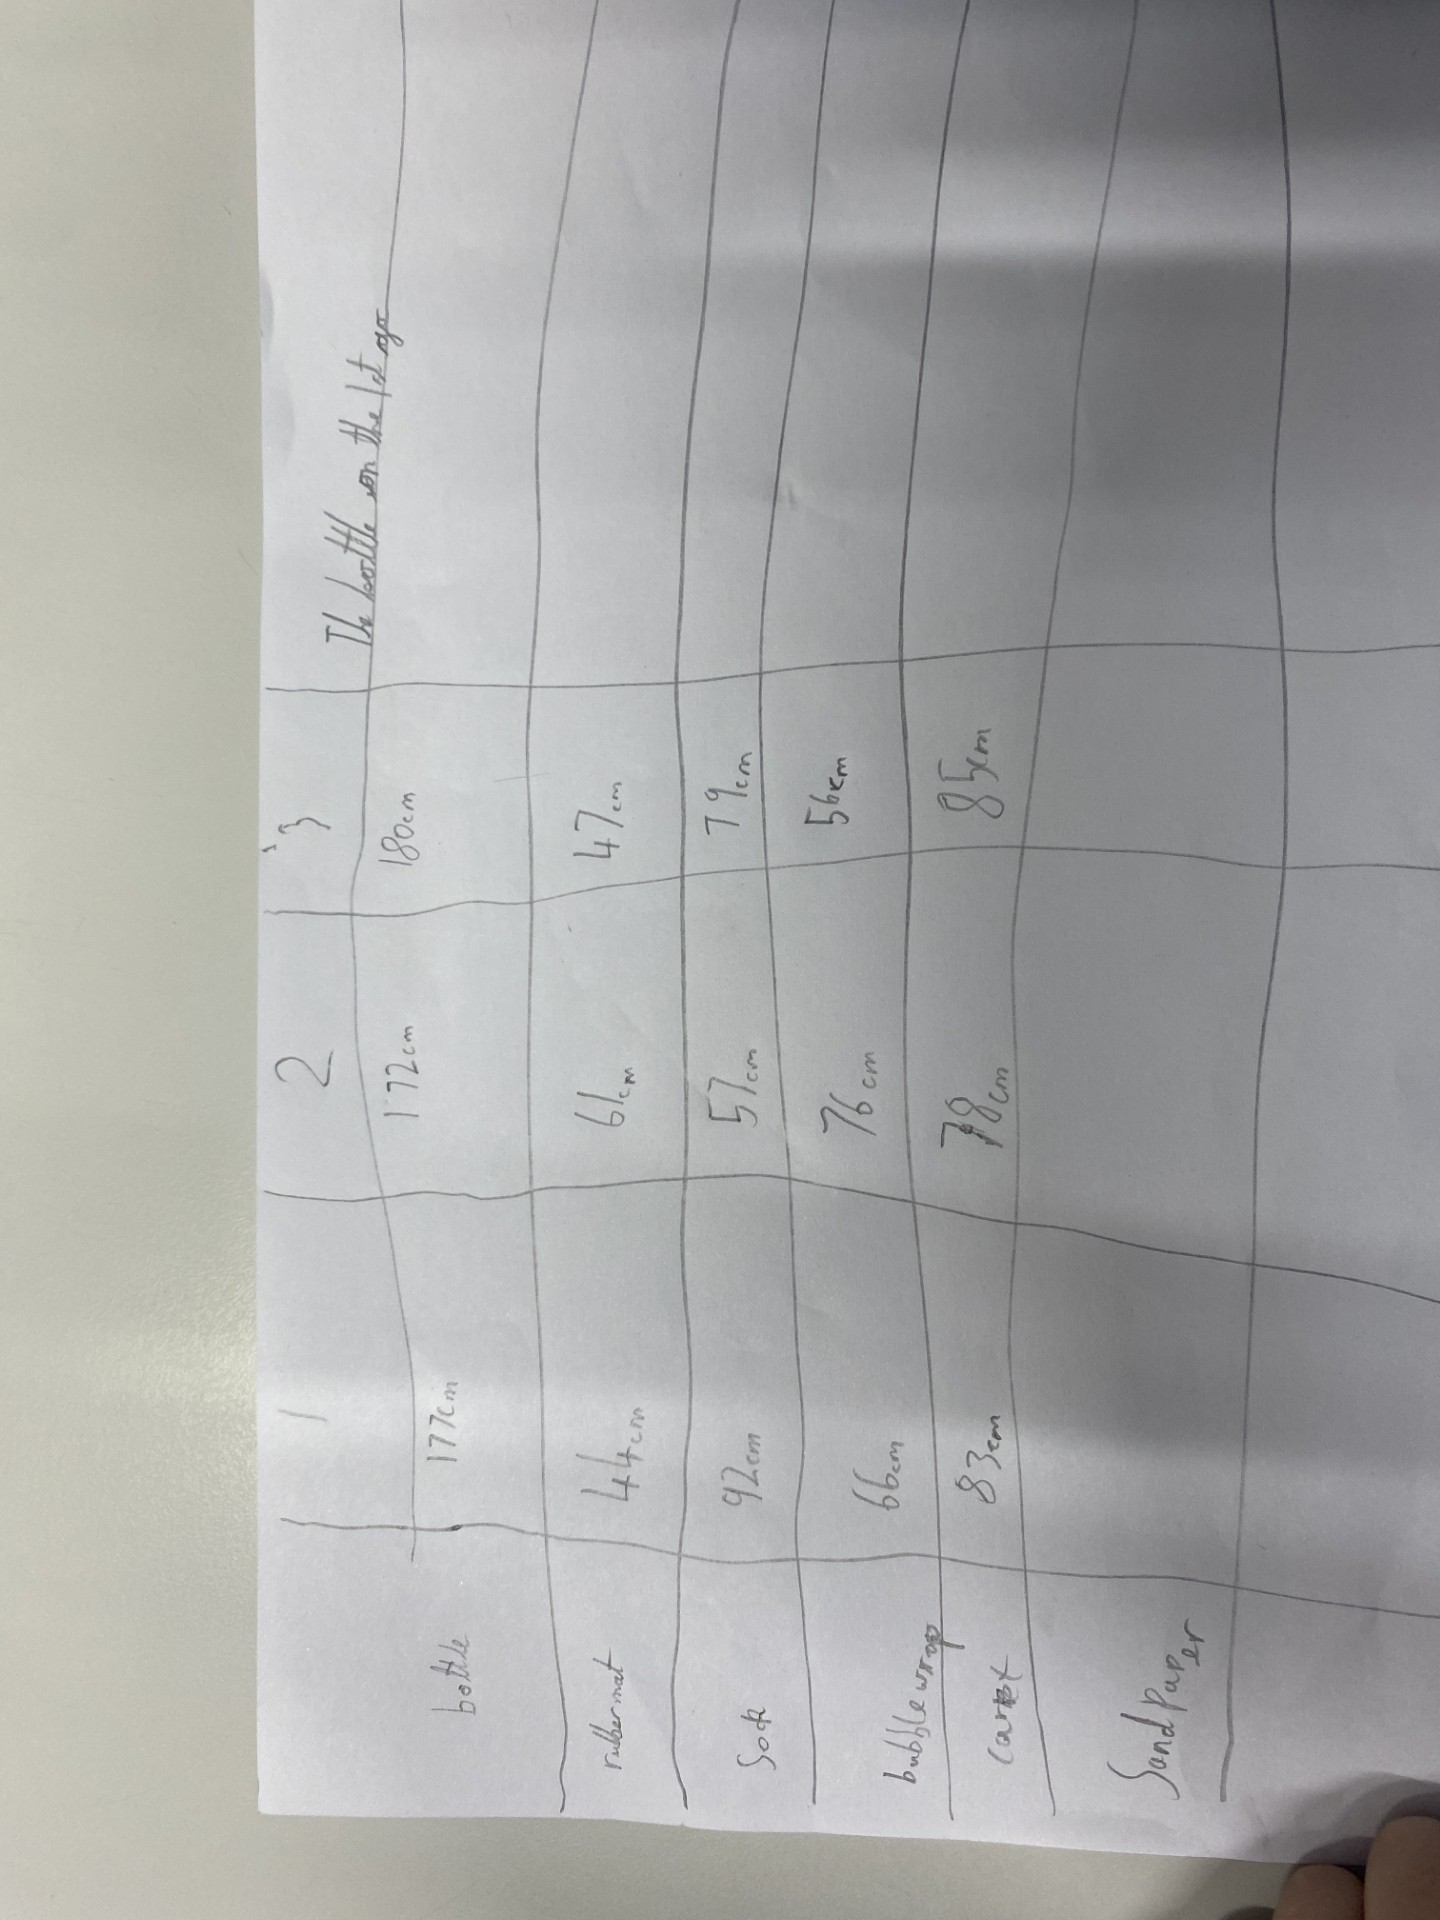 1 2 3 The bottle on the
bottle 177cm 172cm 180cm
rubbermat 44cm 61cm 47cm
Sock 92cm 57cm 79cm
bubblewrap 66cm 76cm 56cm
carpet 83cm 78cm 85cm
Sandpaper